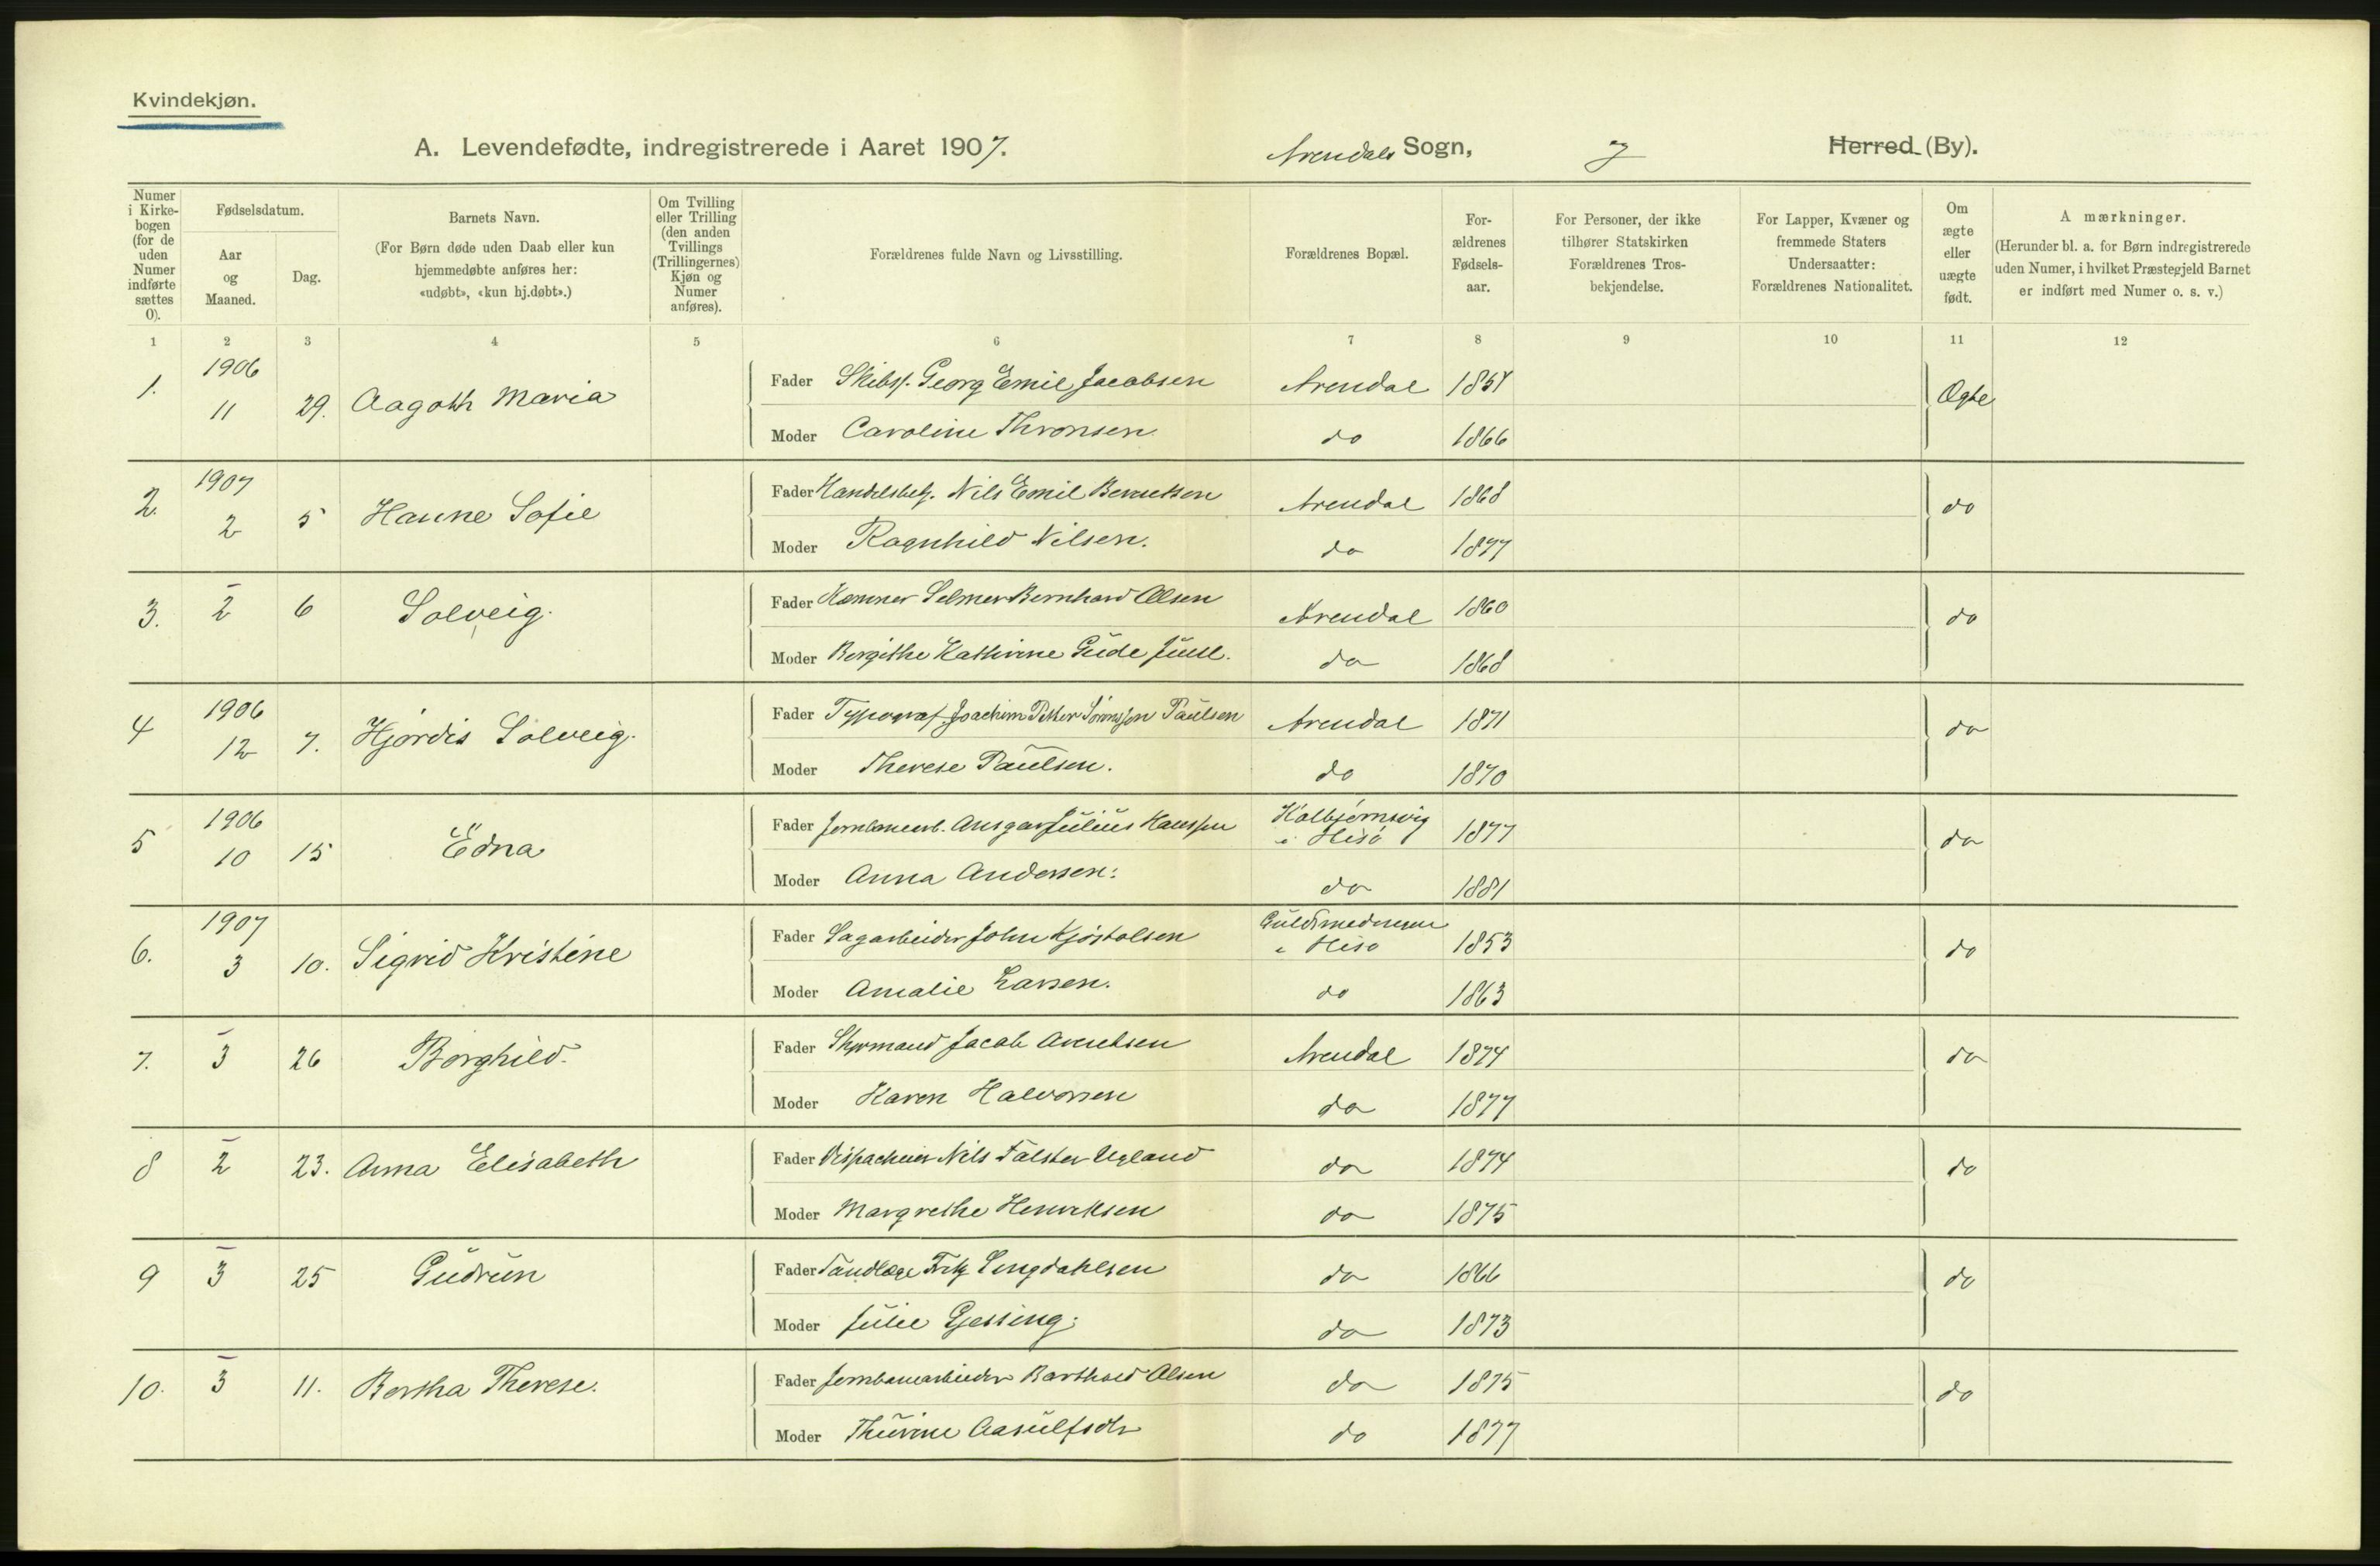 Kvindekjøn.
A. Levendefødte, indregistrerede i Aaret 1907. Arendals Sogn, og Herred (By).
Numer i Kirkebogen (for de uden Numer indførte sættes 0).
Fødselsdatum.
Aar og Maaned.
Dag.
Barnets Navn.
(For Børn døde uden Daab eller kun hjemmedøbte anføres her: «udøbt», «kun hj.døbt».)
Om Tvilling eller Trilling (den anden Tvillings (Trillingernes) Kjøn og Numer anføres).
Forældrenes fulde Navn og Livsstilling.
Forældrenes Bopæl.
Forældrenes Fødselsaar.
For Personer, der ikke tilhører Statskirken Forældrenes Trosbekjendelse.
For Lapper, Kvæner og fremmede Staters Undersaatter: Forældrenes Nationalitet.
Om ægte eller uægte født.
A mærkninger.
(Herunder bl. a. for Børn indregistrerede uden Numer, i hvilket Præstegjeld Barnet er indført med Numer o. s. v.)
1 2 3 4 5 6 7 8 9 10 11 12
1. 1906 11 29. Aagoth Maria Fader Skibsf. Georg Emil Jacobsen Arendal 1857 Ægte
Moder Caroline Thronsen do 1866
2. 1907 2 5 Hanne Sofie Fader Handelsbetj. Nils Emil Berentsen Arendal 1868 do
Moder Ragnhild Nilsen. do 1877
3. – 2 6 Solveig. Fader Kæmner Selmer Bernhard Olsen Arendal 1860 do
Moder Bergithe Kathrine Gude Juell. do 1868
4 1906 12 7. Hjørdis Solveig. Fader Typograf Joachim Petter Paulsen Arendal 1871 do
Moder Therese Paulsen. do 1870
5 1906 10 15 Edna Fader Jernbanearb. Ansgar Julius Hanssen Kolbjørnsvig i Hisø 1877 do
Moder Anna Andersen. do 1881
6. 1907 3 10. Sigrid Kristine Fader Sagarbeider John Kjøstolsen i Hisø 1853 do
Moder Amalie Larsen. do 1863
7. – 3 26 Borghild. Fader Styrmand Jacob Arentsen Arendal 1874 do
Moder Karen Halvorsen do 1877
8 – 2 23. Anna Elisabeth Fader Dispacheur Nils Falster Ugland do 1874 do
Moder Margrethe Henriksen do 1875
9 – 3 25 Gudrun Fader Tandlæge Fritz Lyngdahlsen do 1866 do
Moder Julie Gjessing. do 1873
10. – 3 11. Bertha Therese. Fader Jernbanearbeider Barthold Olsen do 1875 do
Moder Thurine Aasulfsdtr do 1877